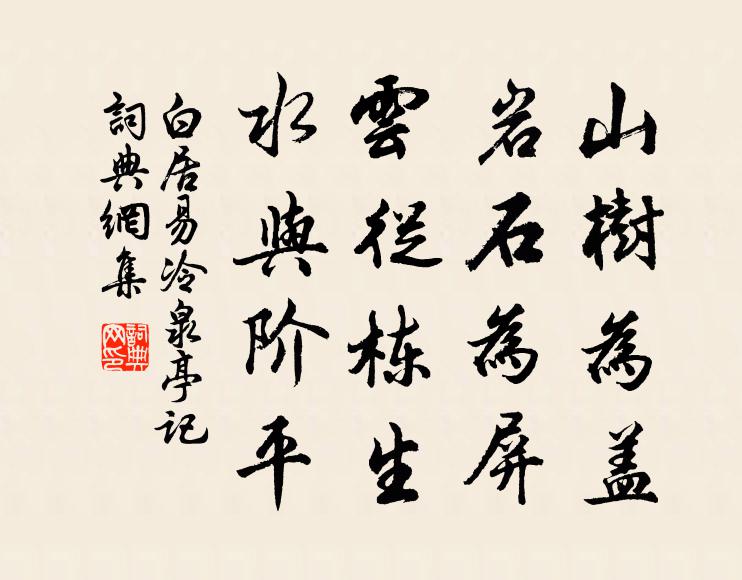 山樹為盖
岩石為屏
雲從栋生
水與阶平
白居易冷泉亭记
詞典網集
詞典网印